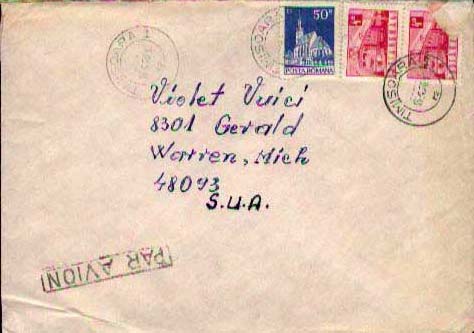 TIMISOARA 1
50B
POSTA ROMANA
TIMISOARA
TIMISOARA
Violet Vuici
8301 Gerald
Warren, Mich
48093
S.U.A.
PAR AVION